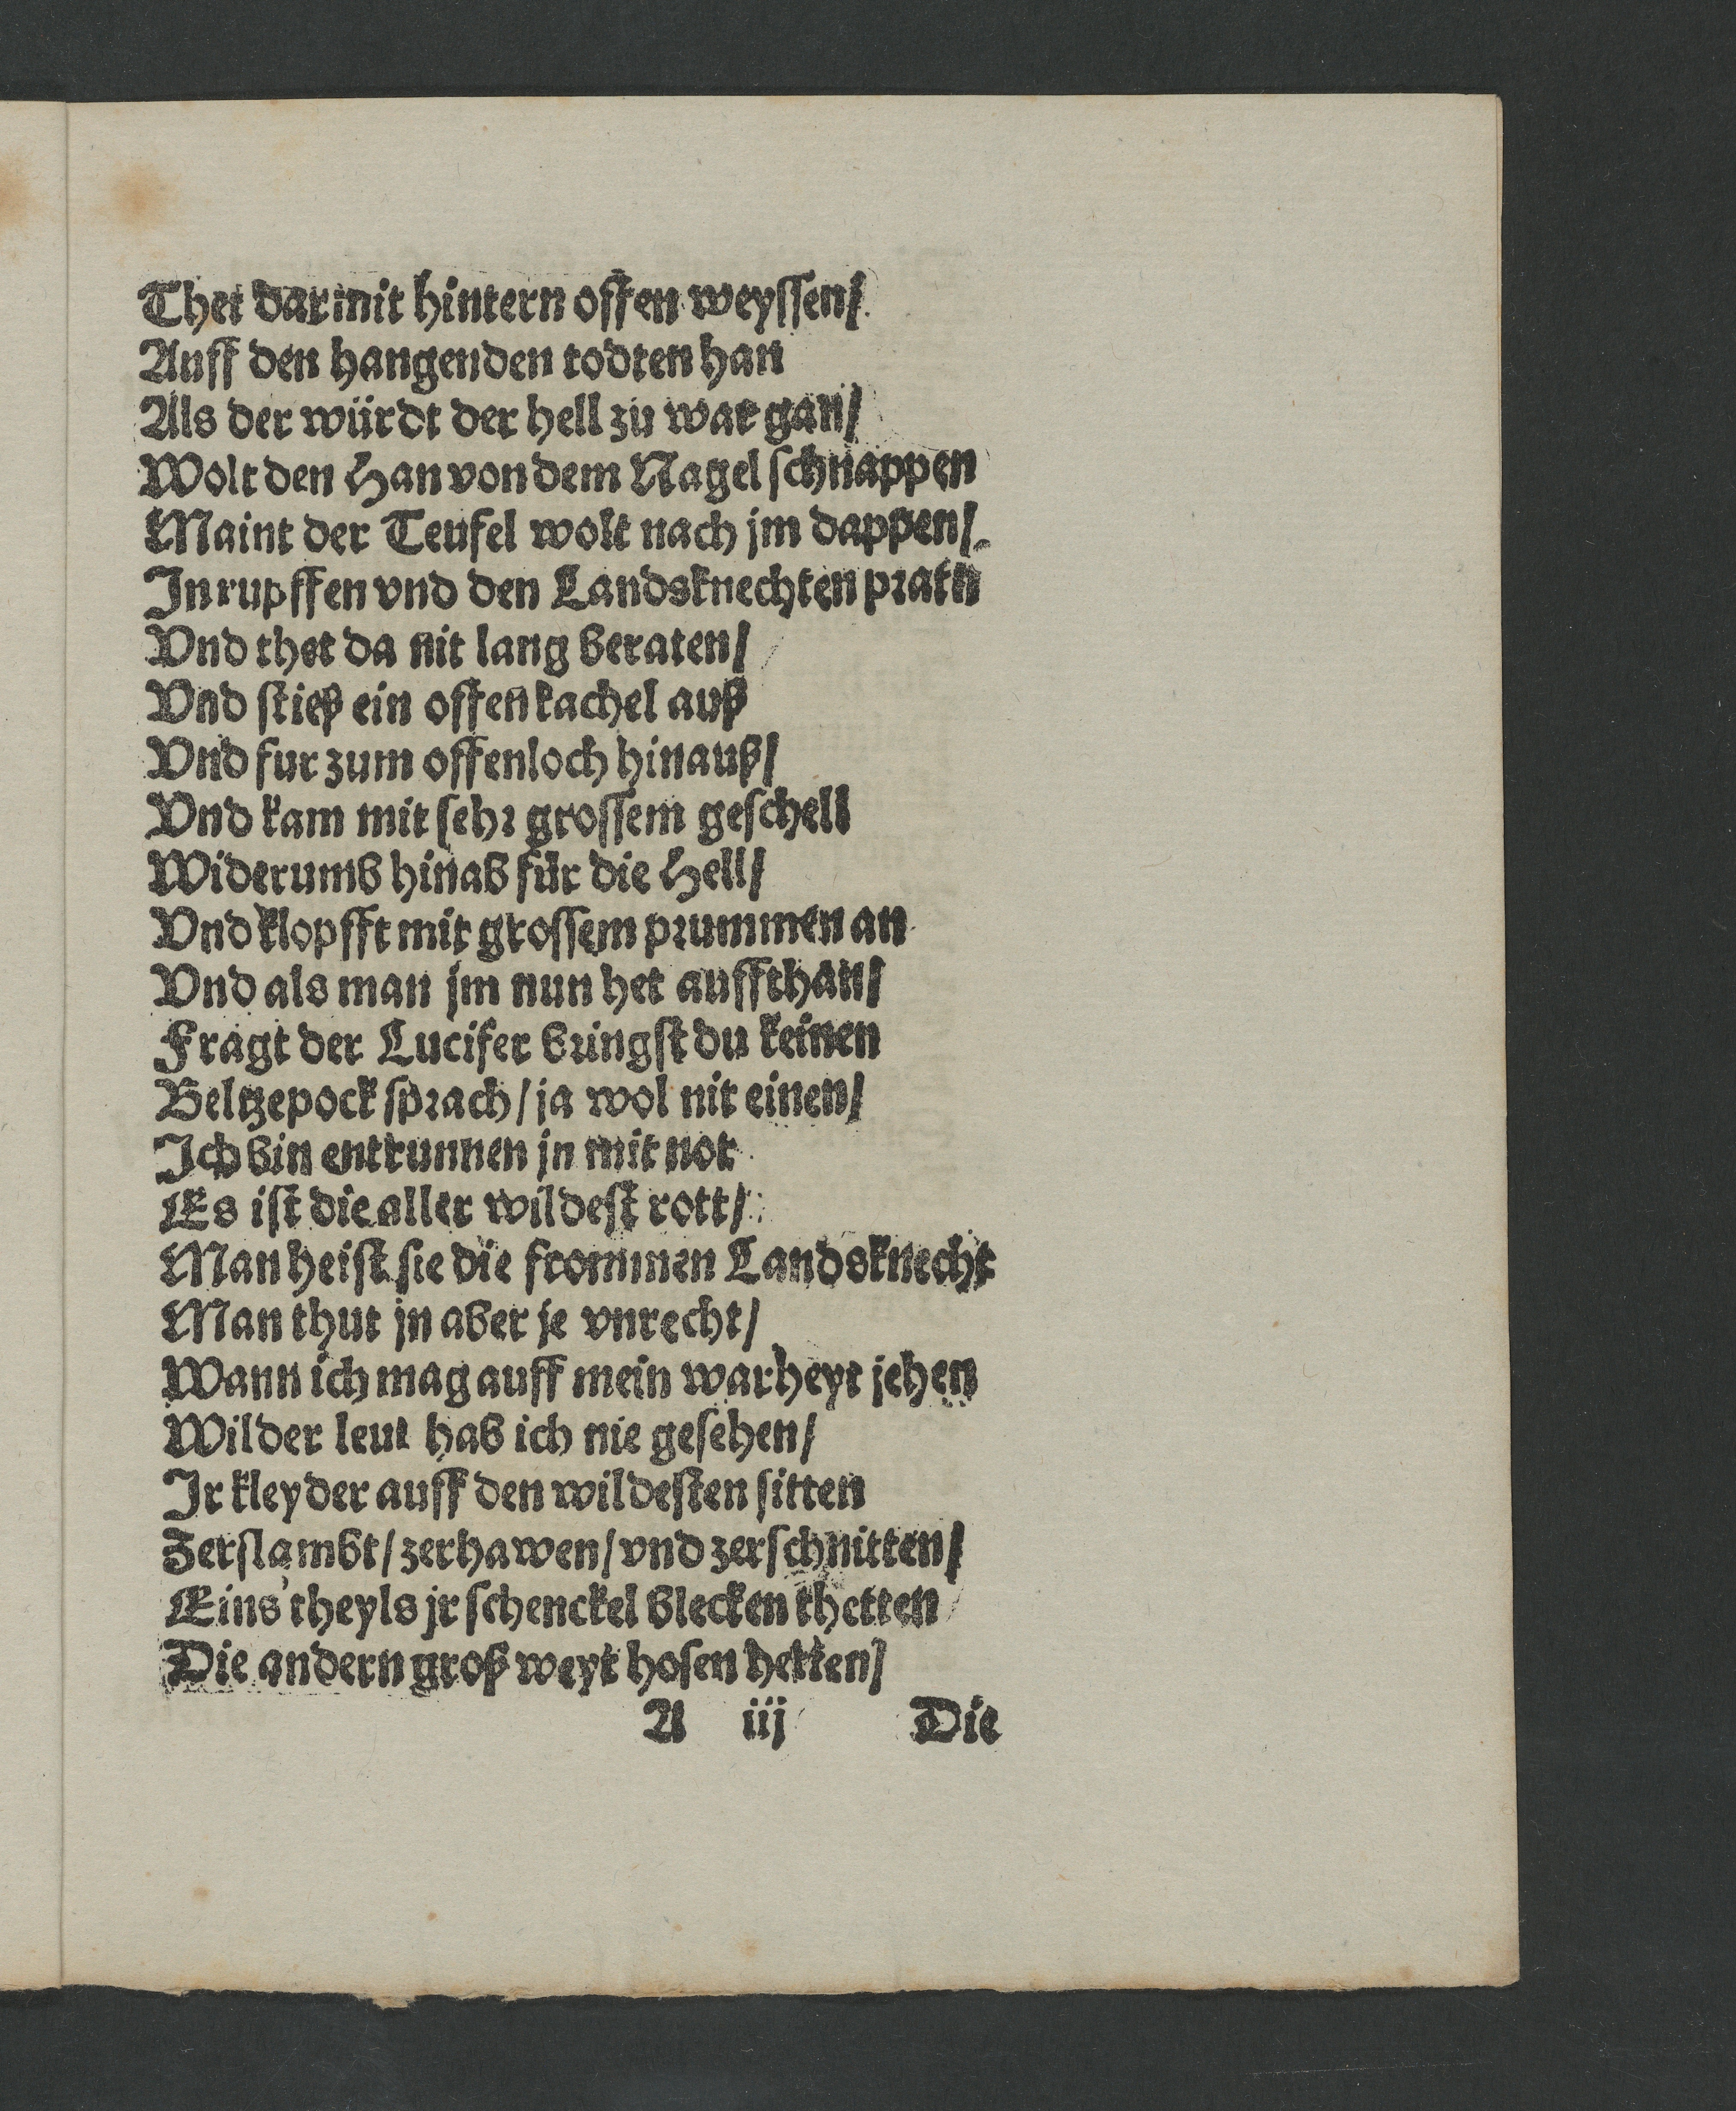 Thet darmit hintern offen weyssen/
Auff den hangenden todten han
Als der würdt der hell zu war gan/
Wolt den Han von dem Nagel schnappen
Maint der Teufel wolt nach jm dappen/
In rupffen vnd den Landsknechten pratn
Vnd thet da nit lang beraten/
Vnd stieß ein offen kachel auß
Vnd fur zum offenloch hinauß/
Vnd kam mit sehr grossem geschell
Widerumb hinab für die Hell/
Vnd klopfft mit grossem prummen an
Vnd als man jm nun het auffthan/
Fragt der Lucifer bringst du keinen
Beltzepock sprach/ ja wol nit einen/
Ich bin entrunnen jn mit not
Es ist die aller wildest rott/
Man heist sie die frommen Landsknecht
Man thut jn aber je vnrecht/
Wann ich mag auff mein warheyt jehen
Wilder leut hab ich nie gesehen/
Ir kleyder auff den wildesten sitten
Zerflambt/ zerhawen/ vnd zerschnitten/
Eins theyls jr schenckel blecken thetten
Die andern groß weyt hosen hetten/
A iij Die